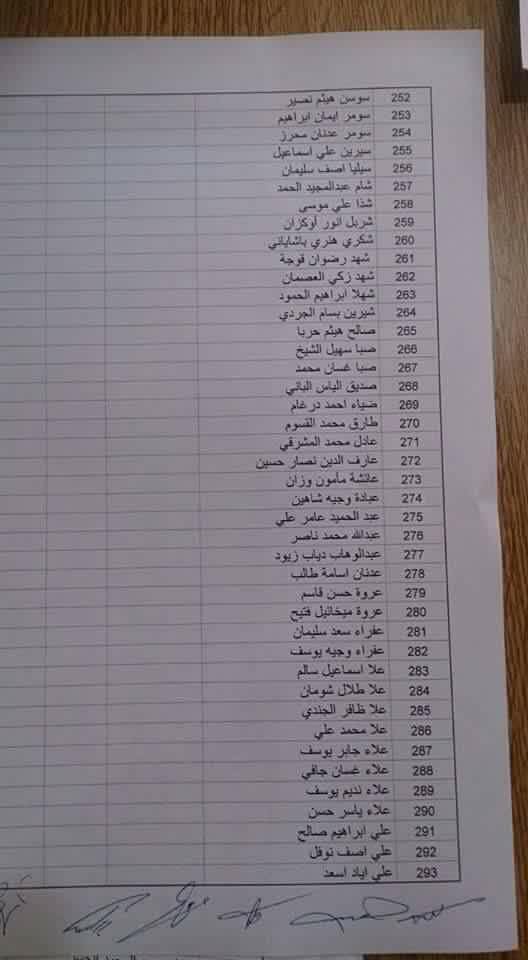 252 سوسن هيثم نصير
253 سومر ايمان ابراهيم
254 سومر عدنان محرز
255 سيرين علي اسماعيل
256 سيليا اصف سليمان
257 شام عبدالمجيد الحمد
258 شذا علي موسى
259 شربل انور أوكزان
260 شكري هنري باشاياني
261 شهد رضوان قوجة
262 شهد زكي العصمان
263 شهلا ابراهيم الحمود
264 شيرين بسام الجردي
265 صالح هيثم حربا
266 صبا سهيل الشيخ
267 صبا غسان محمد
268 صديق الياس الباني
269 ضياء احمد درغام
270 طارق محمد القسوم
271 عادل محمد المشرقي
272 عارف الدين نصار حسين
273 عائشة مأمون وزان
274 عبادة وجيه شاهين
275 عبد الحميد عامر علي
276 عبدالله محمد ناصر
277 عبدالوهاب دياب زيود
278 عدنان اسامة طالب
279 عروة حسن قاسم
280 عروة ميخائيل فتيح
281 عفراء سعد سليمان
282 عفراء وجيه يوسف
283 علا اسماعيل سالم
284 علا طلال شومان
285 علا ظافر الجندي
286 علا محمد علي
287 علاء جابر يوسف
288 علاء غسان جافي
289 علاء نديم يوسف
290 علاء ياسر حسن
291 علي ابراهيم صالح
292 علي اصف نوفل
293 علي اياد اسعد